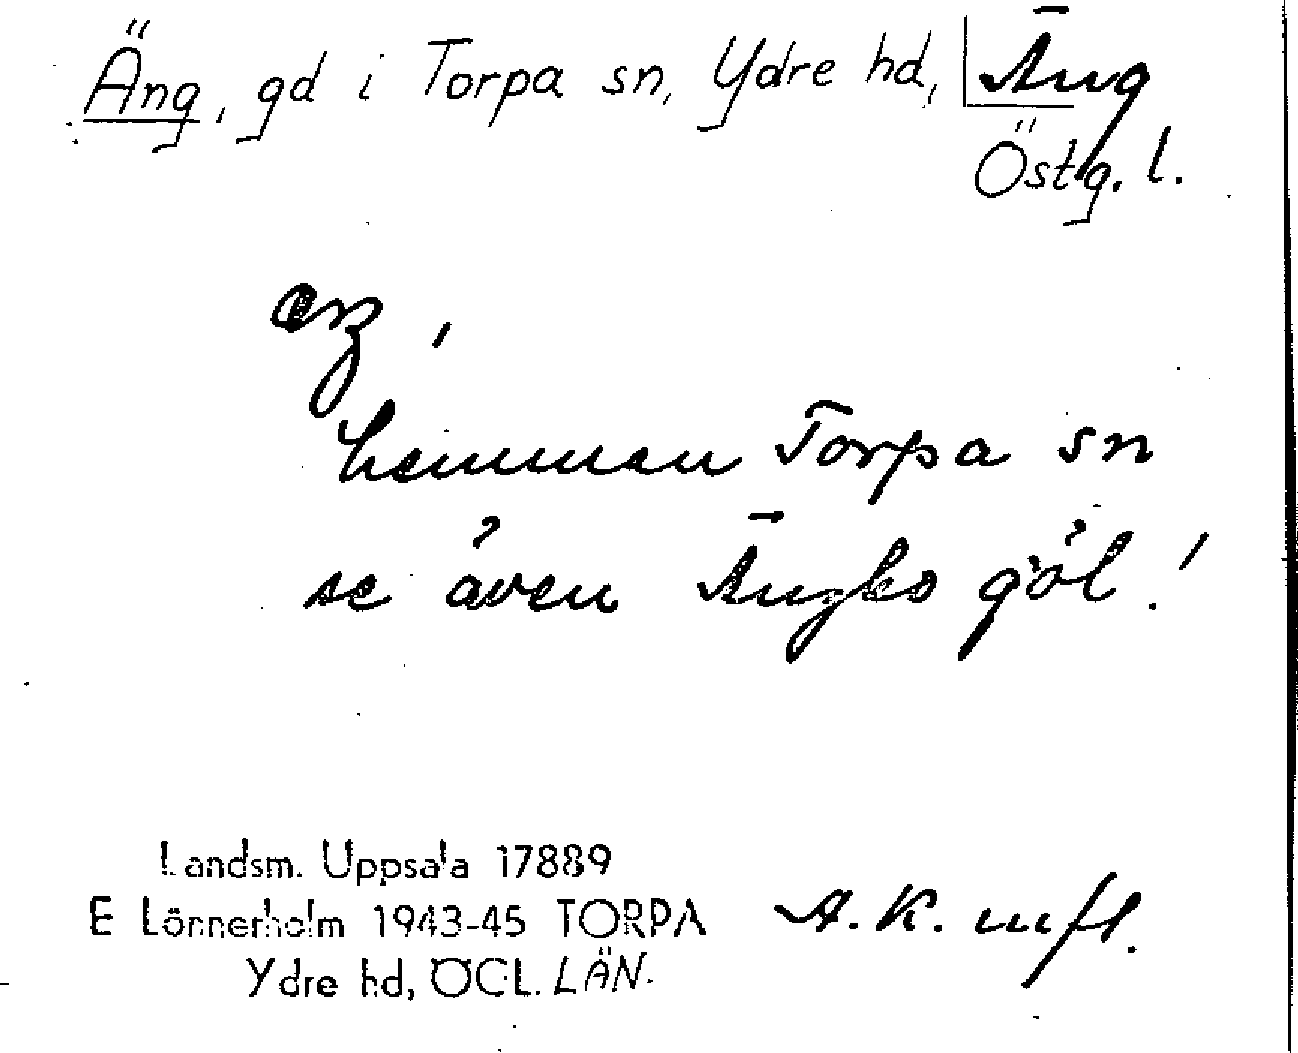 Äng, gd i Torpa sn, Ydre hd, Äng
Östg. l.
hemman Torpa sn
se även Ängbo göl!
Landsm. Uppsala 17889
E Lönnerholm 1943-45 TORPA A.K. mfl.
Ydre hd, ÖGL. LÄN.